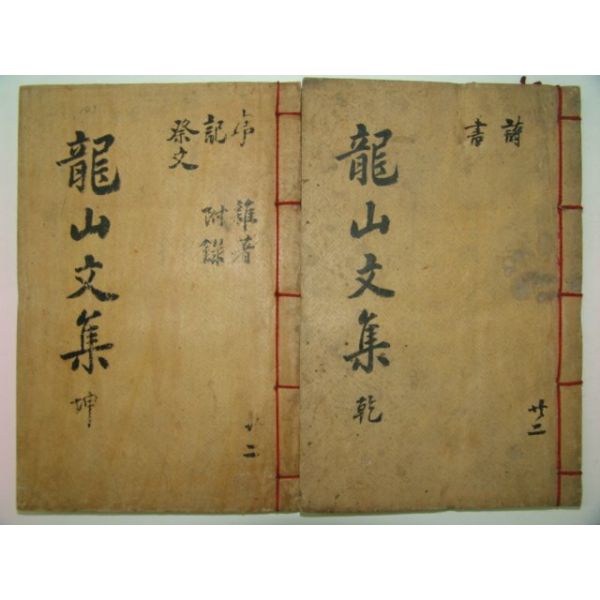 詩
書
龍山文集 乾
共二
序 雜著
記 附錄
祭文
龍山文集 坤
共二